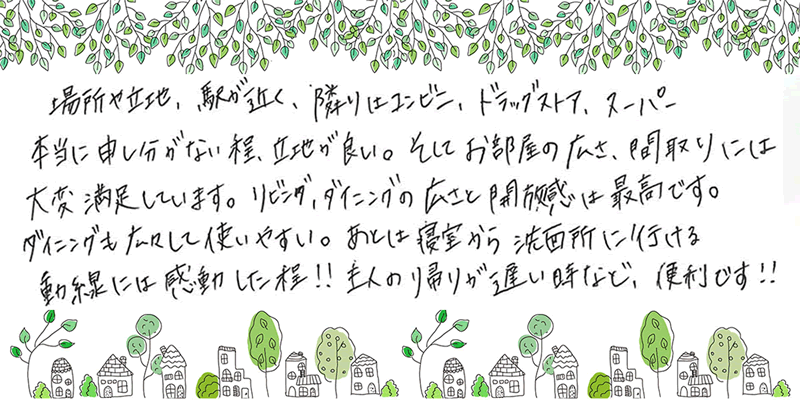 場所や立地、駅が近く、隣りはコンビニ、ドラッグストア、スーパー
本当に申し分がない程、立地が良い。そしてお部屋の広さ、間取りには
大変満足しています。リビング、ダイニングの広さと開放感は最高です。
ダイニングも広々して使いやすい。あとは寝室から洗面所に行ける
動線には感動した程!!主人の帰りが遅い時など、便利です!!